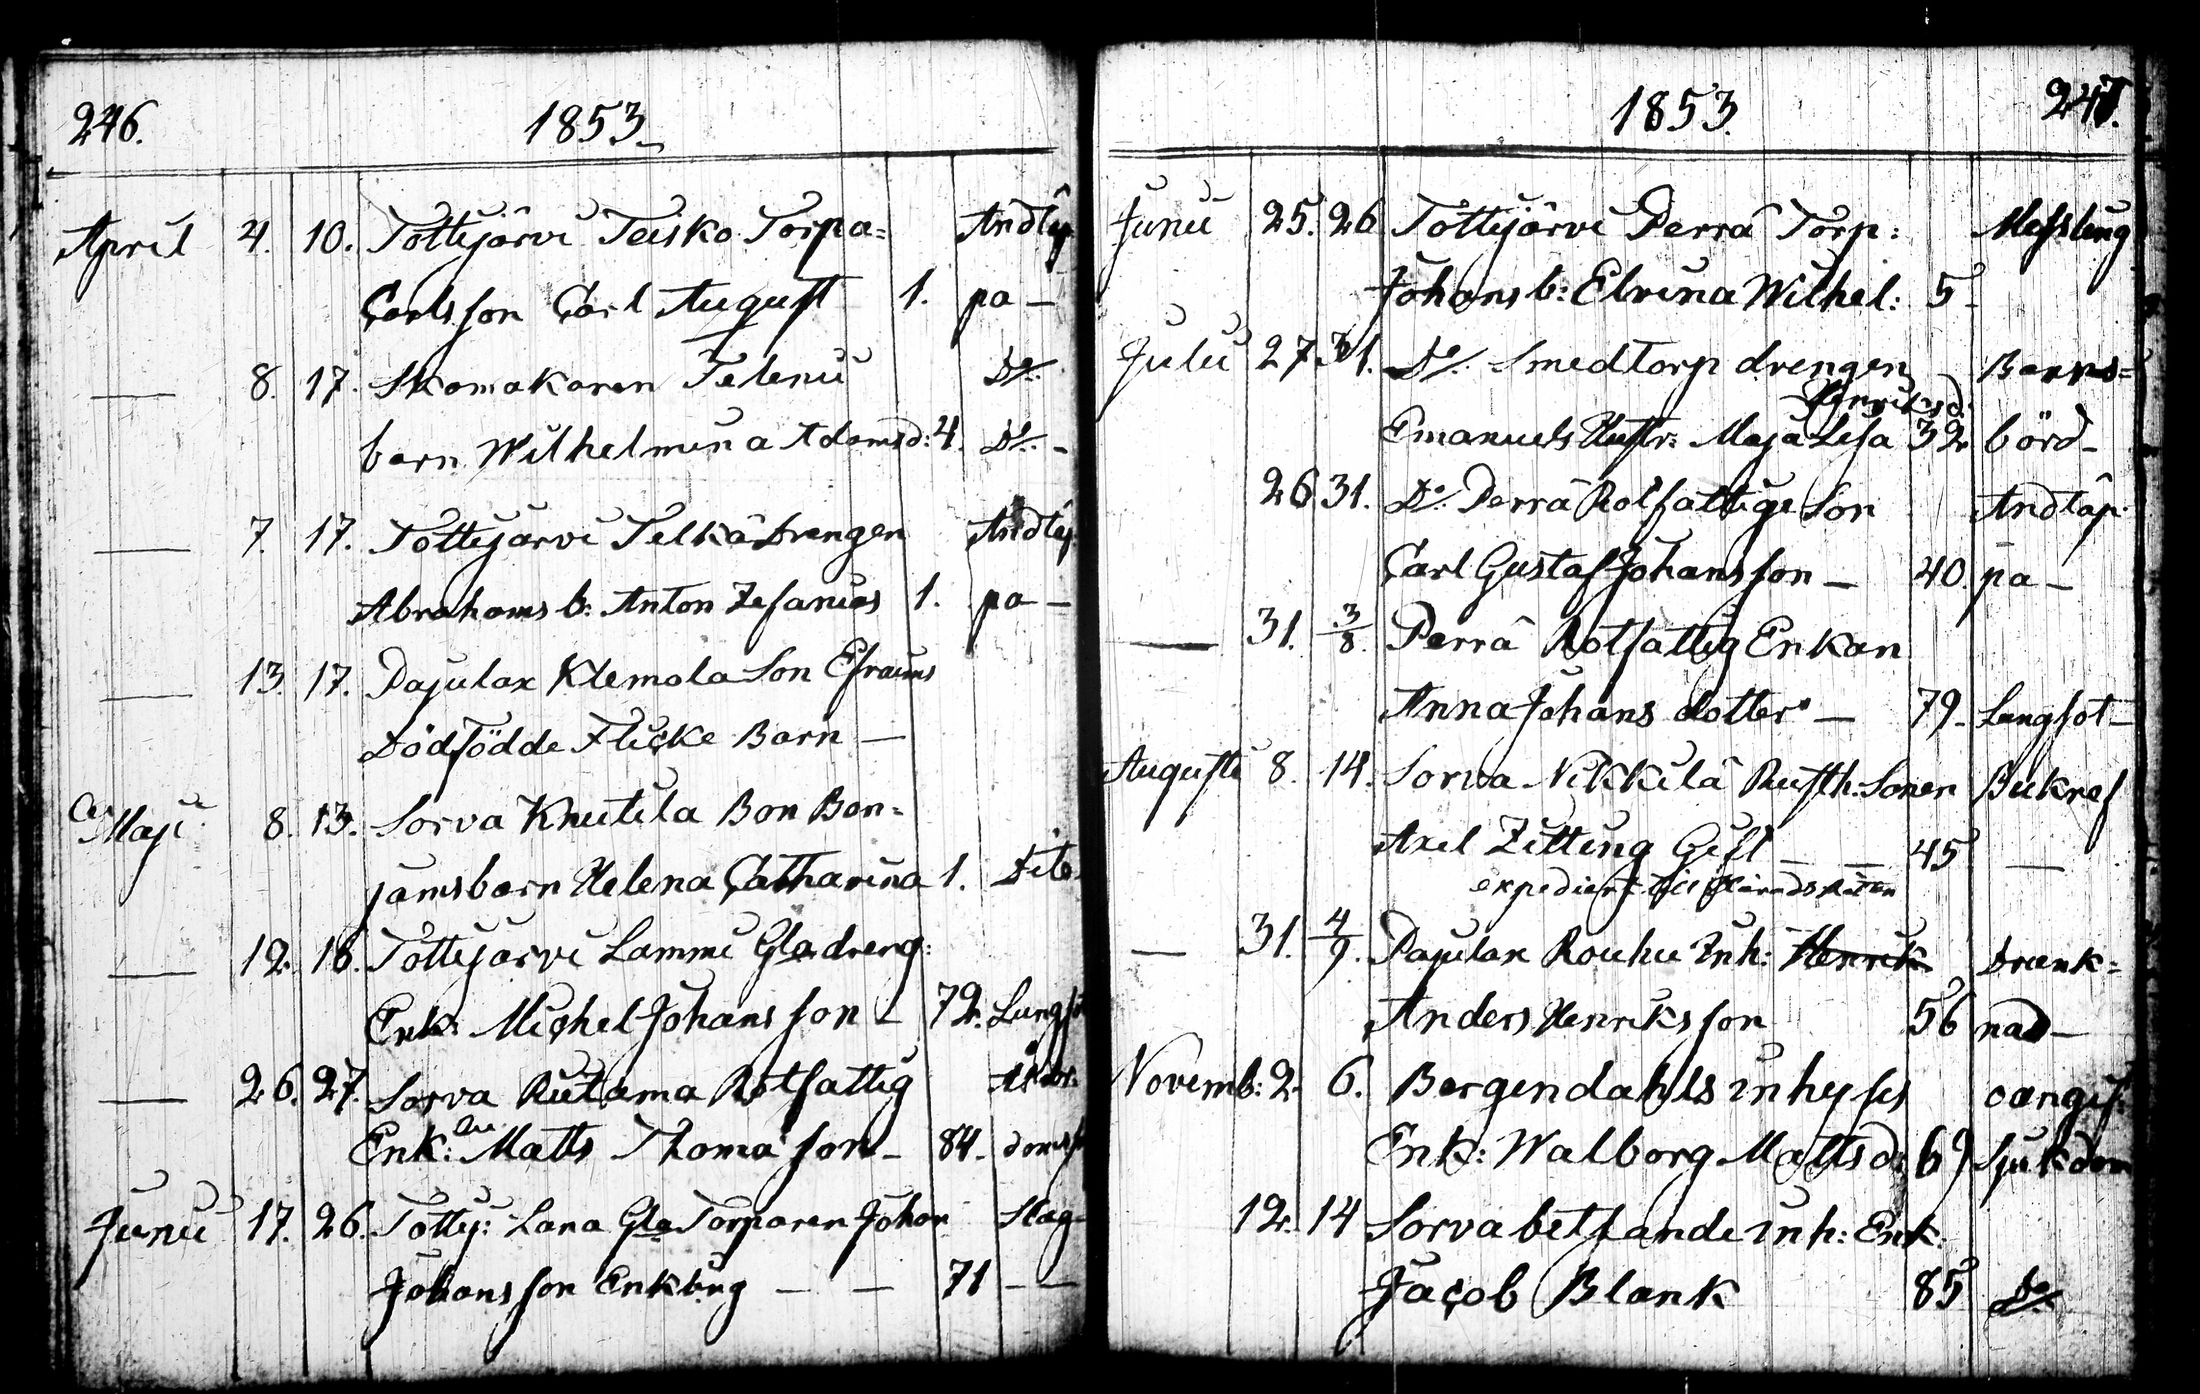 246. 1853.
April 4. 10. Tottijärvi Teisko Torpa= Andtäp
Carlsson Carl August 1. pa —
— 8. 17. Skomakaren Telenii Do
barn Wilhelmina Adamsd: 4. Do —
— 7. 17. Tottijärvi Telkä Drengen Andtäp
Abrahams b: Anton Zefanias 1. pa —
— 13. 17. Pajulax Klemola Son Efraims
Dödfödde Flicke Barn —
Maji 8. 13. Sorva Knutila Bon Ben=
jamsbarn Helena Catharina 1. Dito
— 12. 16. Tottijärvi Lammi Gla dreng:
Enk: Michel Johansson — 72. Lungsot
— 26. 27. Sorva Rutama Rotfattig Ålder:
Enk: Matts Thomasson — 84. doms
Junii 17. 26. Tottij: Lana Gla Torparen Johan Slag
Johansson Enkling — — 71 — —
1853. 247.
Junii 25. 26 Tottijärvi Perrä Torp: Messling
Johans b: Elvina Wilhel: 5 —
Julii 27. 31. Do Smedtorp drengen Barns=
Henriksd:
Emanuels Hustr: Maja Lisa 32 börd —
26 31. Do Perrä Rotfattige Son Andtäp
Carl Gustaf Johansson — 40. pa —
— 31. 3/8. Perrä Rotfattig Enkan
Anna Johans dotter — 79. Lungsot —
Augusti 8. 14. Sorva Nikkilä Rusth: Sonen Bukref
Axel Zitting Gift — — 45 —
— 31. 4/9. Pajulax Rouhu Inh: Henrik Drunk=
Anders Henriksson 56 nad —
Novemb: 2. 6. Bergendahls inhyses oangif:
Enk: Walborg Mattsd: 69 Sjukdom
12. 14 Sorva betlande inh: Enk:
Jacob Blank 85 Do